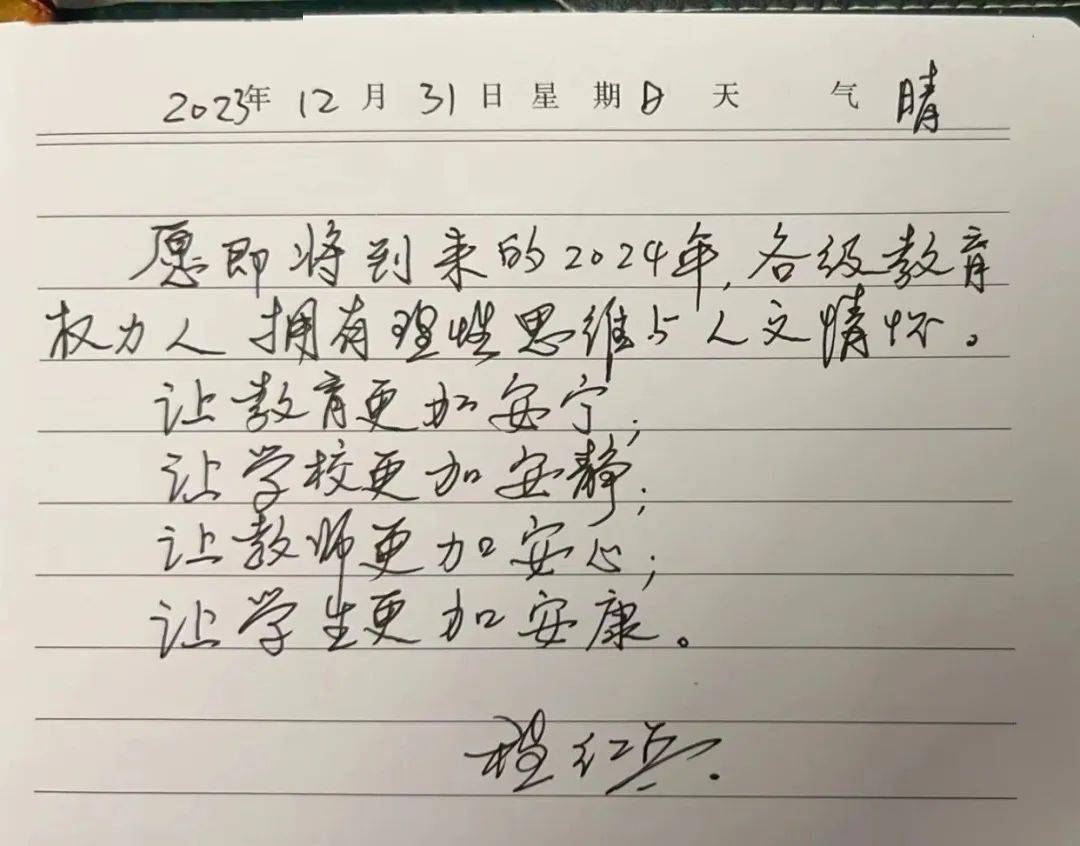 2023年 12月 31日 星期日 天气 晴
愿即将到来的2024年,各级教育
权力人 拥有理性思维与人文情怀。
让教育更加安宁;
让学校更加安静;
让教师更加安心;
让学生更加安康。
程红兵